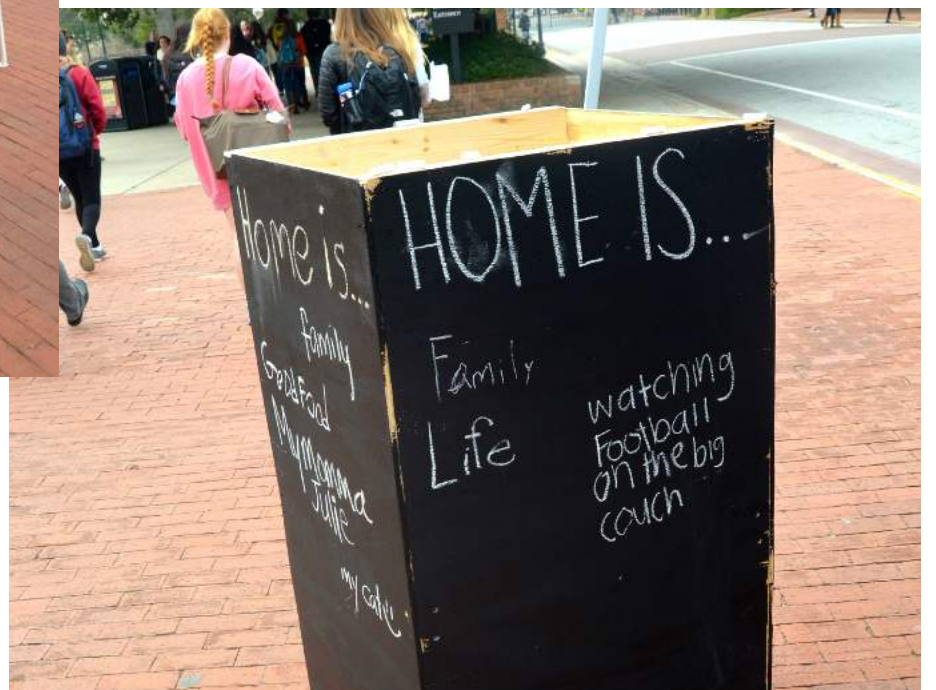 Entrance
Home is...
family
Good Food
My Momma
Julie
HOME IS...
Family
Life
watching
Football
on the big
couch